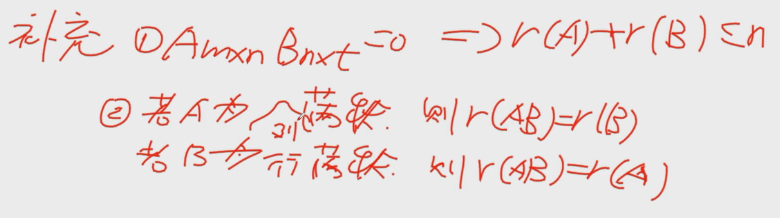 补充 ①Amxn Bnxt=0 => r(A)+r(B)≤n
②若A为列满秩. 则r(AB)=r(B)
若B为行满秩. 则r(AB)=r(A)